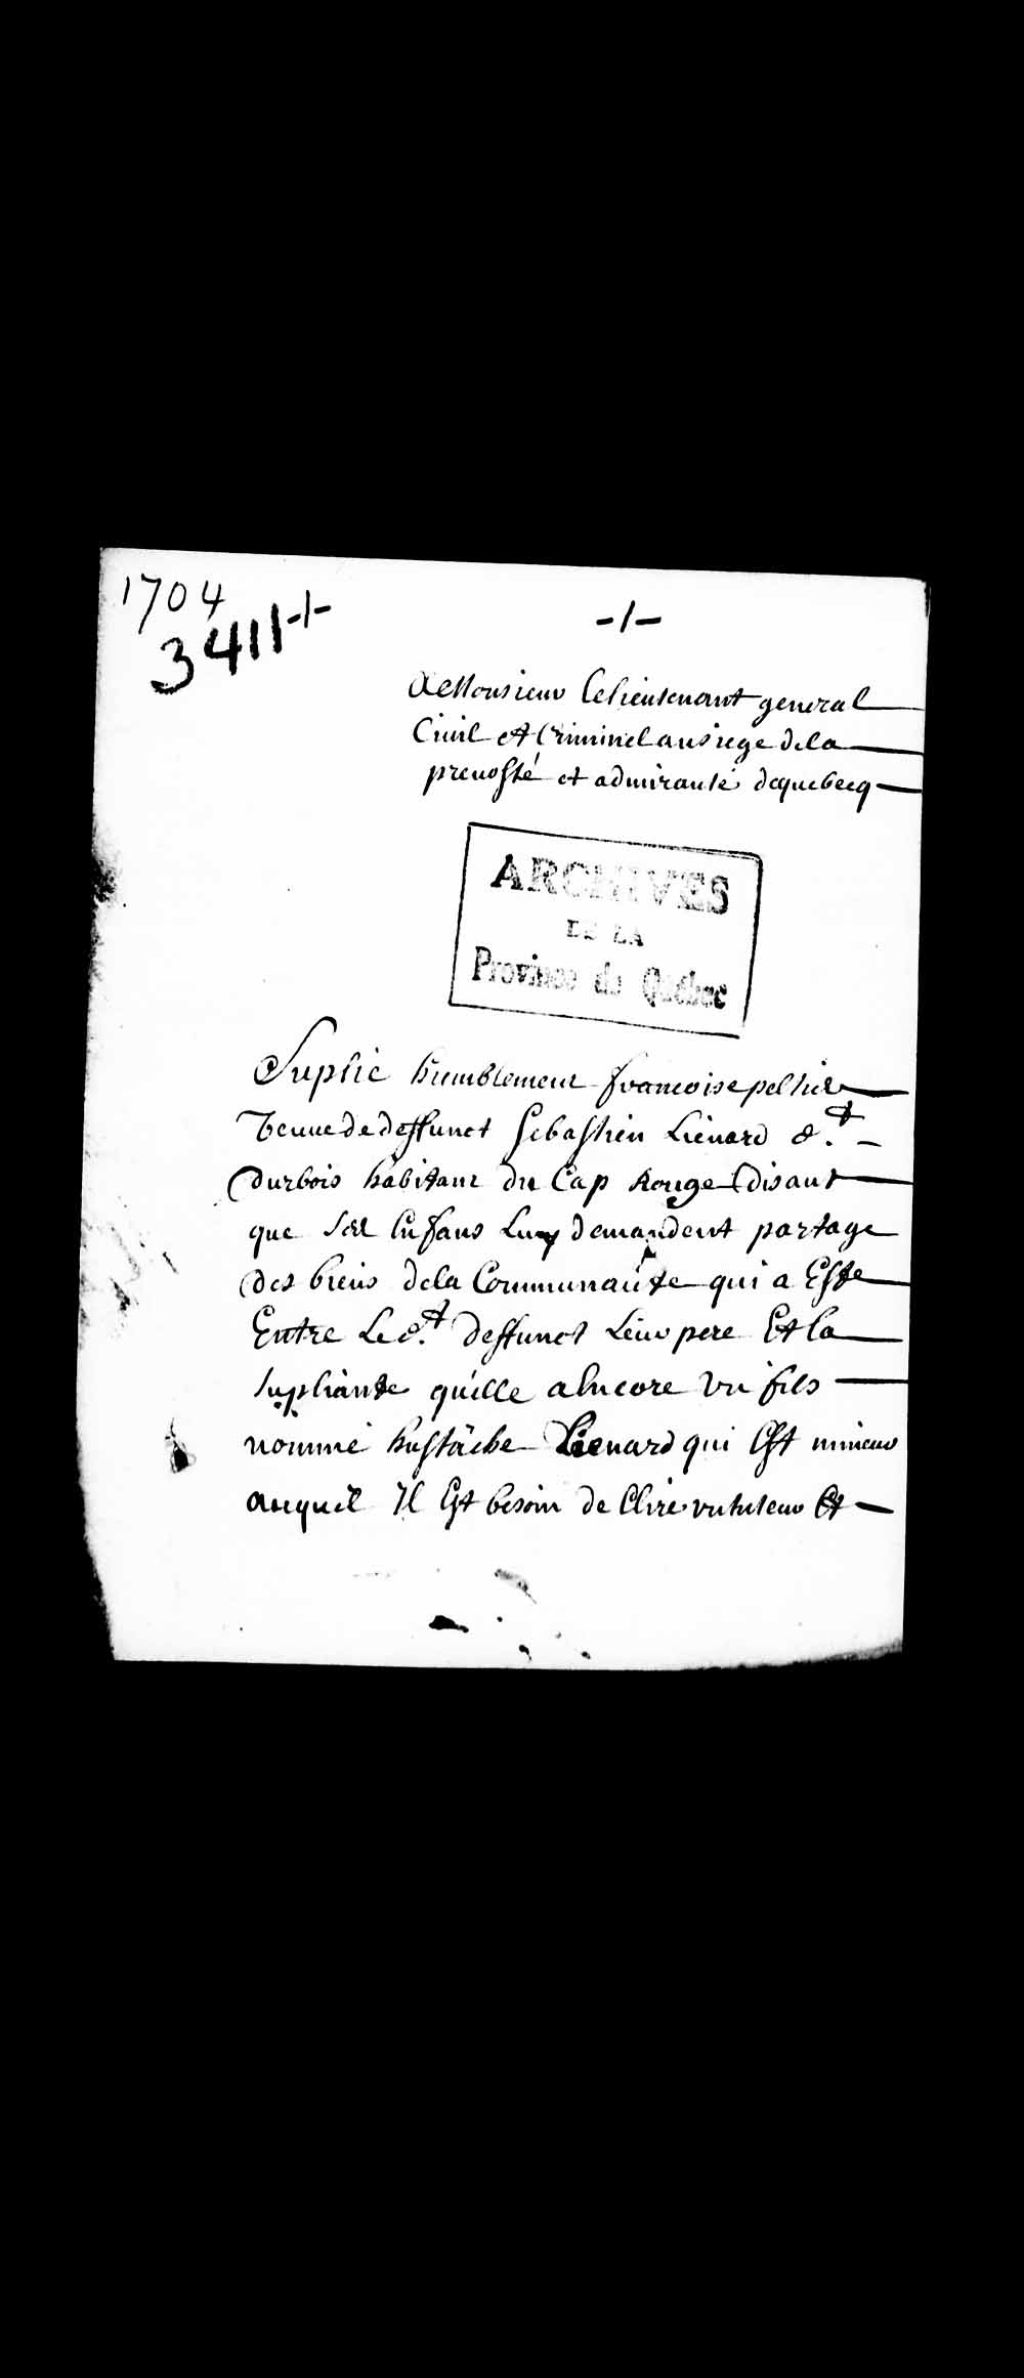 1704
3411-/-
-/-
A Monsieur Lelieutenant general
Civil et Criminel ausiege dela
prevosté et admirauté dequebecq
ARCHIVES
DE LA
Province de Québec
Suplie humblement francoise peltier
veuve de deffunct Sebastien Liénard d.t
Durbois habitant du Cap Rouge Disant
que ses Enfans Luy demandent partage
des biens dela Communauté qui a Esté
Entre Le d.t deffunct Leur pere Et la
supliante qu'elle a Encore un fils
nommé Eustache Lienard qui Est mineur
auquel Il Est besoin de Elire un tuteur Et